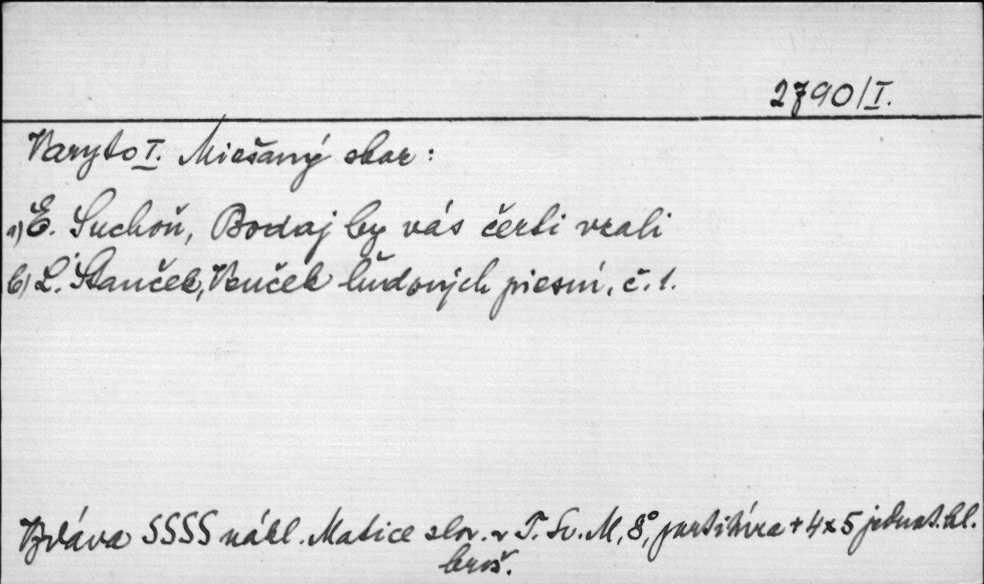 2790/I.
Varyto I. Miešaný sbor:
a) E. Suchoň, Bodaj by vás čerti vzali
b) L. Stanček, Venček ľudových piesní, č. 1.
Vydáva SSSS nákl. Matice slov. v T. Sv. M, 8°, partitúra + 4x5 jednot. hl.
brož.